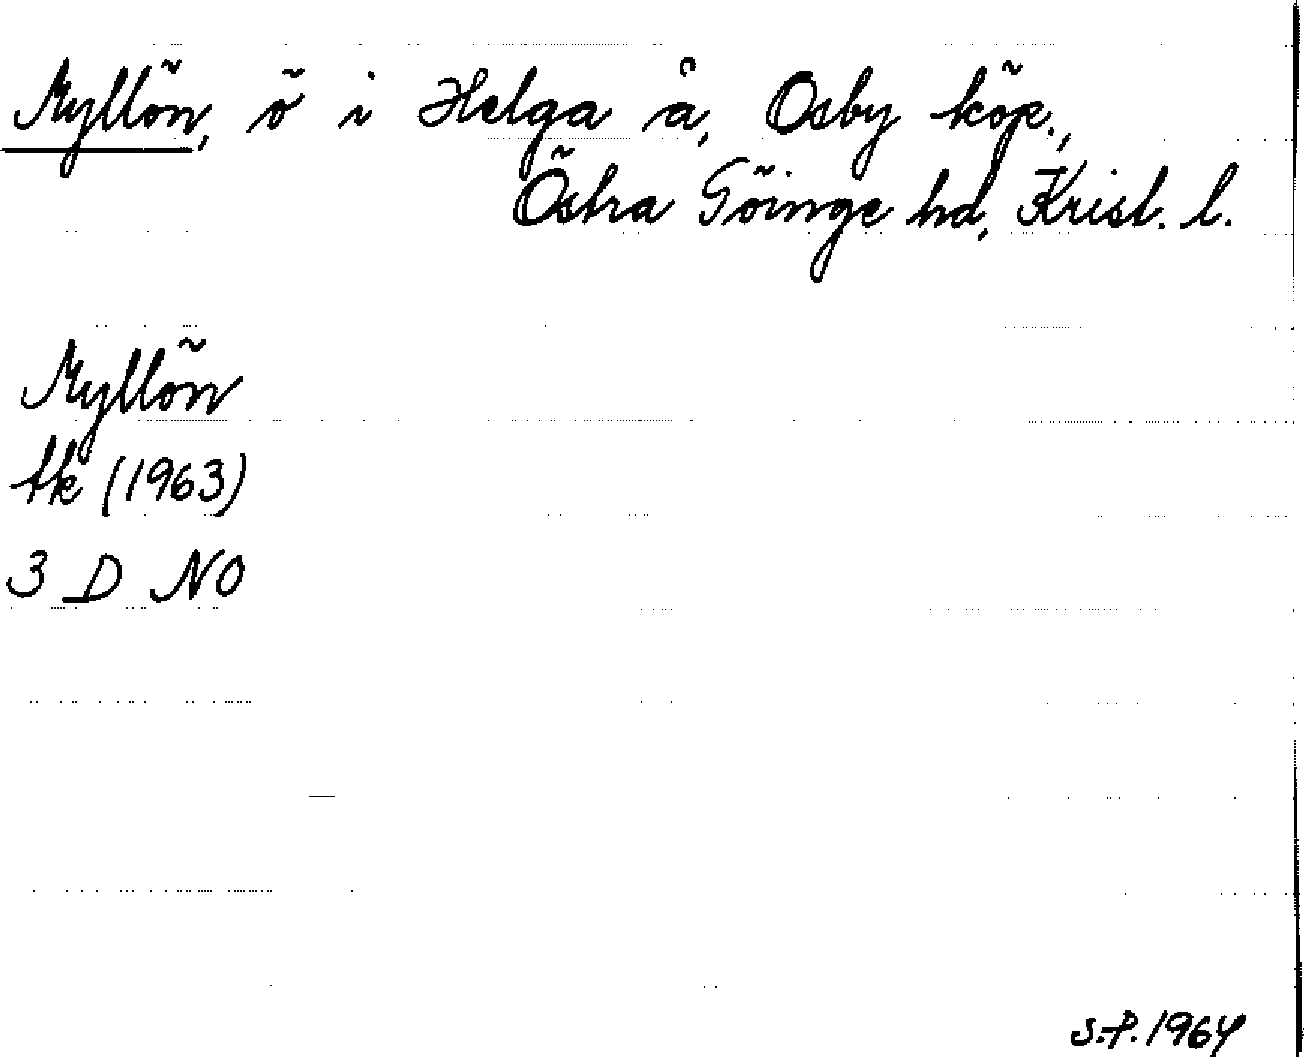 Myllön, ö i Helga å, Osby köp.,
Östra Göinge hd, Krist. l.
Myllön
tk (1963)
3 D NO
S.P. 1964